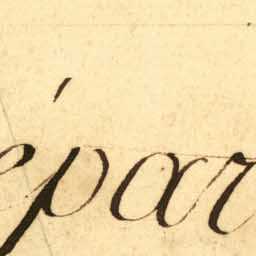 épar